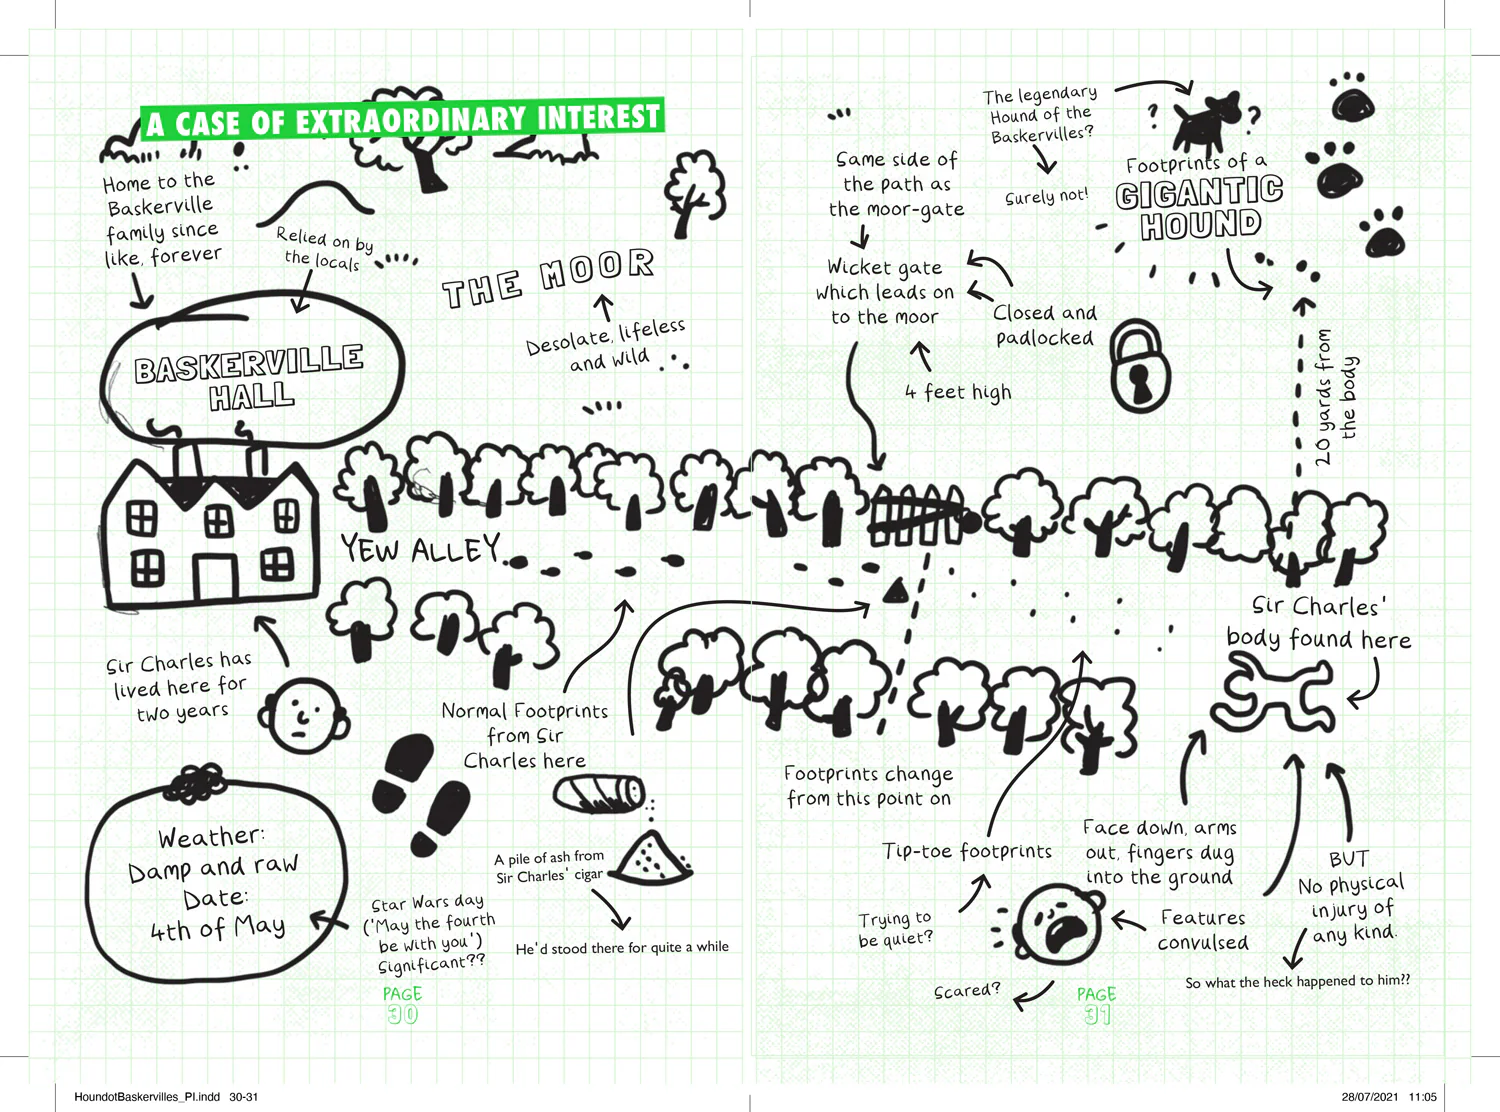 A CASE OF EXTRAORDINARY INTEREST
Home to the
Baskerville
family since
like, forever
Relied on by
the locals
THE MOOR
Desolate, lifeless
and wild
BASKERVILLE
HALL
YEW ALLEY
Sir Charles has
lived here for
two years
Normal Footprints
from Sir
Charles here
Weather:
Damp and raw
Date:
4th of May
Star Wars day
('May the fourth
be with you')
Significant??
A pile of ash from
Sir Charles' cigar
He'd stood there for quite a while
PAGE
30
The legendary
Hound of the
Baskervilles?
Surely not!
? ?
Footprints of a
GIGANTIC
HOUND
Same side of
the path as
the moor-gate
Wicket gate
which leads on
to the moor
Closed and
padlocked
4 feet high
20 yards from
the body
Sir Charles'
body found here
Footprints change
from this point on
Tip-toe footprints
Trying to
be quiet?
Scared?
Face down, arms
out, fingers dug
into the ground
Features
convulsed
BUT
No physical
injury of
any kind.
So what the heck happened to him??
PAGE
31
HoundotBaskervilles_PI.indd 30-31
28/07/2021 11:05